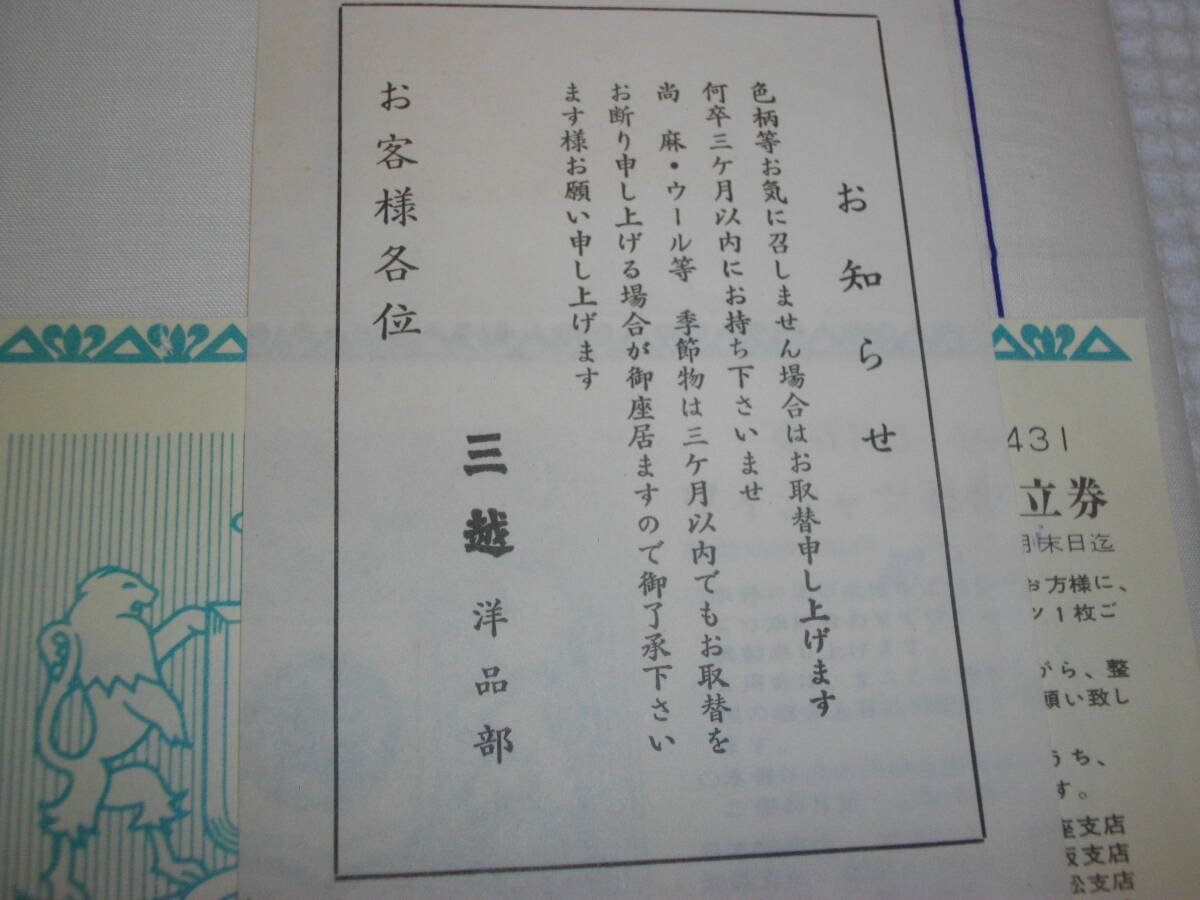 お知らせ
色柄等お気に召しません場合はお取替申し上げます
何卒三ケ月以内にお持ち下さいませ
尚 麻・ウール等 季節物は三ケ月以内でもお取替を
お断り申し上げる場合が御座居ますので御了承下さい
ます様お願い申し上げます
三越 洋品部
お客様各位
431
立券
月末日迄
お方様に、
ツ1枚ご
がら、整
願い致し
うち、
す。
座支店
阪支店
松支店